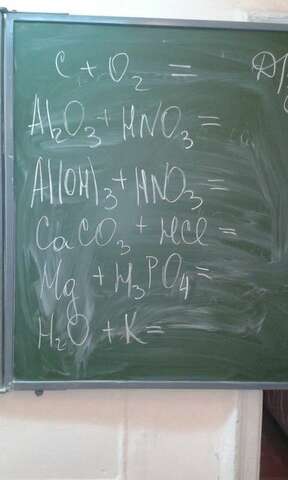 C + O₂ = Д/
Al₂O₃ + HNO₃ =
Al(OH)₃ + HNO₃ =
CaCO₃ + HCl =
Mg + H₃PO₄ =
H₂O + K =